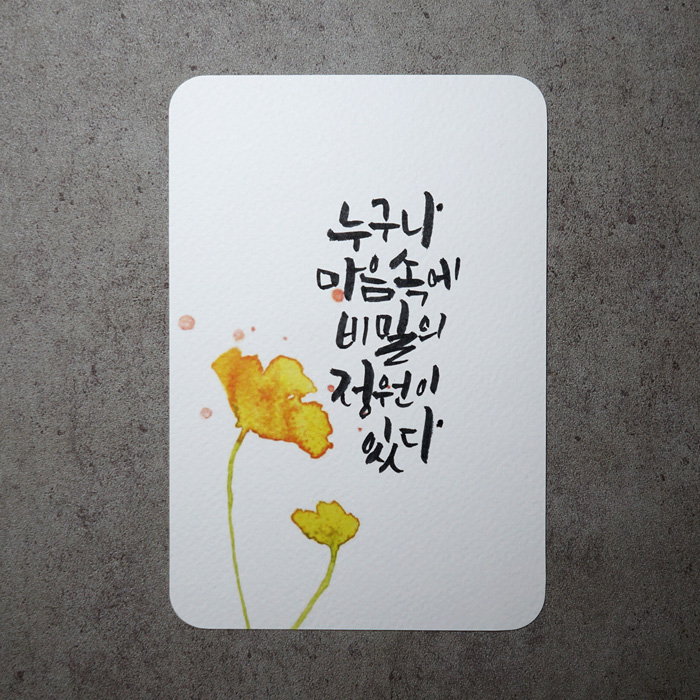 누구나
마음속에
비밀의
정원이
있다